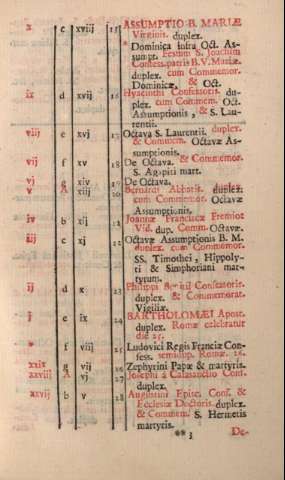 x c xviij 15 ASSUMPTIO B. MARIÆ
Virginis. duplex.
* Dominica infra Oct. As-
sumpt. Festum S. Joachim
Confess. patris B. V. Mariæ.
duplex. cum Commemor.
Dominicæ, & Oct.
ix d xvij 16 Hyacinthi Confessoris. du-
plex. cum Commem. Oct.
Assumptionis, & S. Lau-
rentii.
viij e xvj 17 Octava S. Laurentii. duplex.
& Commem. Octavæ As-
sumptionis.
vij f xv 18 De Octava. & Commemor.
S. Agapiti mart.
vj g xiv 19 De Octava.
v A xiij 20 Bernardi Abbatis. duplex.
cum Commemor. Octavæ
Assumptionis.
iv b xij 21 Joannæ Franciscæ Fremiot
Vid. dup. Comm. Octavæ.
iij c xj 22 Octavæ Assumptionis B. M.
duplex. cum Commemor.
SS. Timothei, Hippoly-
ti & Simphoriani mar-
tyrum.
ij d x 23 Philippi Benitii Confessoris.
duplex. & Commemorat.
Vigiliæ.
j e ix 24 BARTHOLOMÆI Apost.
duplex. Romæ celebratur
die 25.
* f viij 25 Ludovici Regis Franciæ Con-
fess. semidup. Romæ. 26.
xxix g vij 26 Zephyrini Papæ & martyris.
xxviij A vj 27 Josephi a Calasanctio Conf.
duplex.
xxvij b v 28 Augustini Episc. Conf. &
Ecclesiæ Doctoris. duplex.
& Commem. S. Hermetis
martyris.
** 3 De-